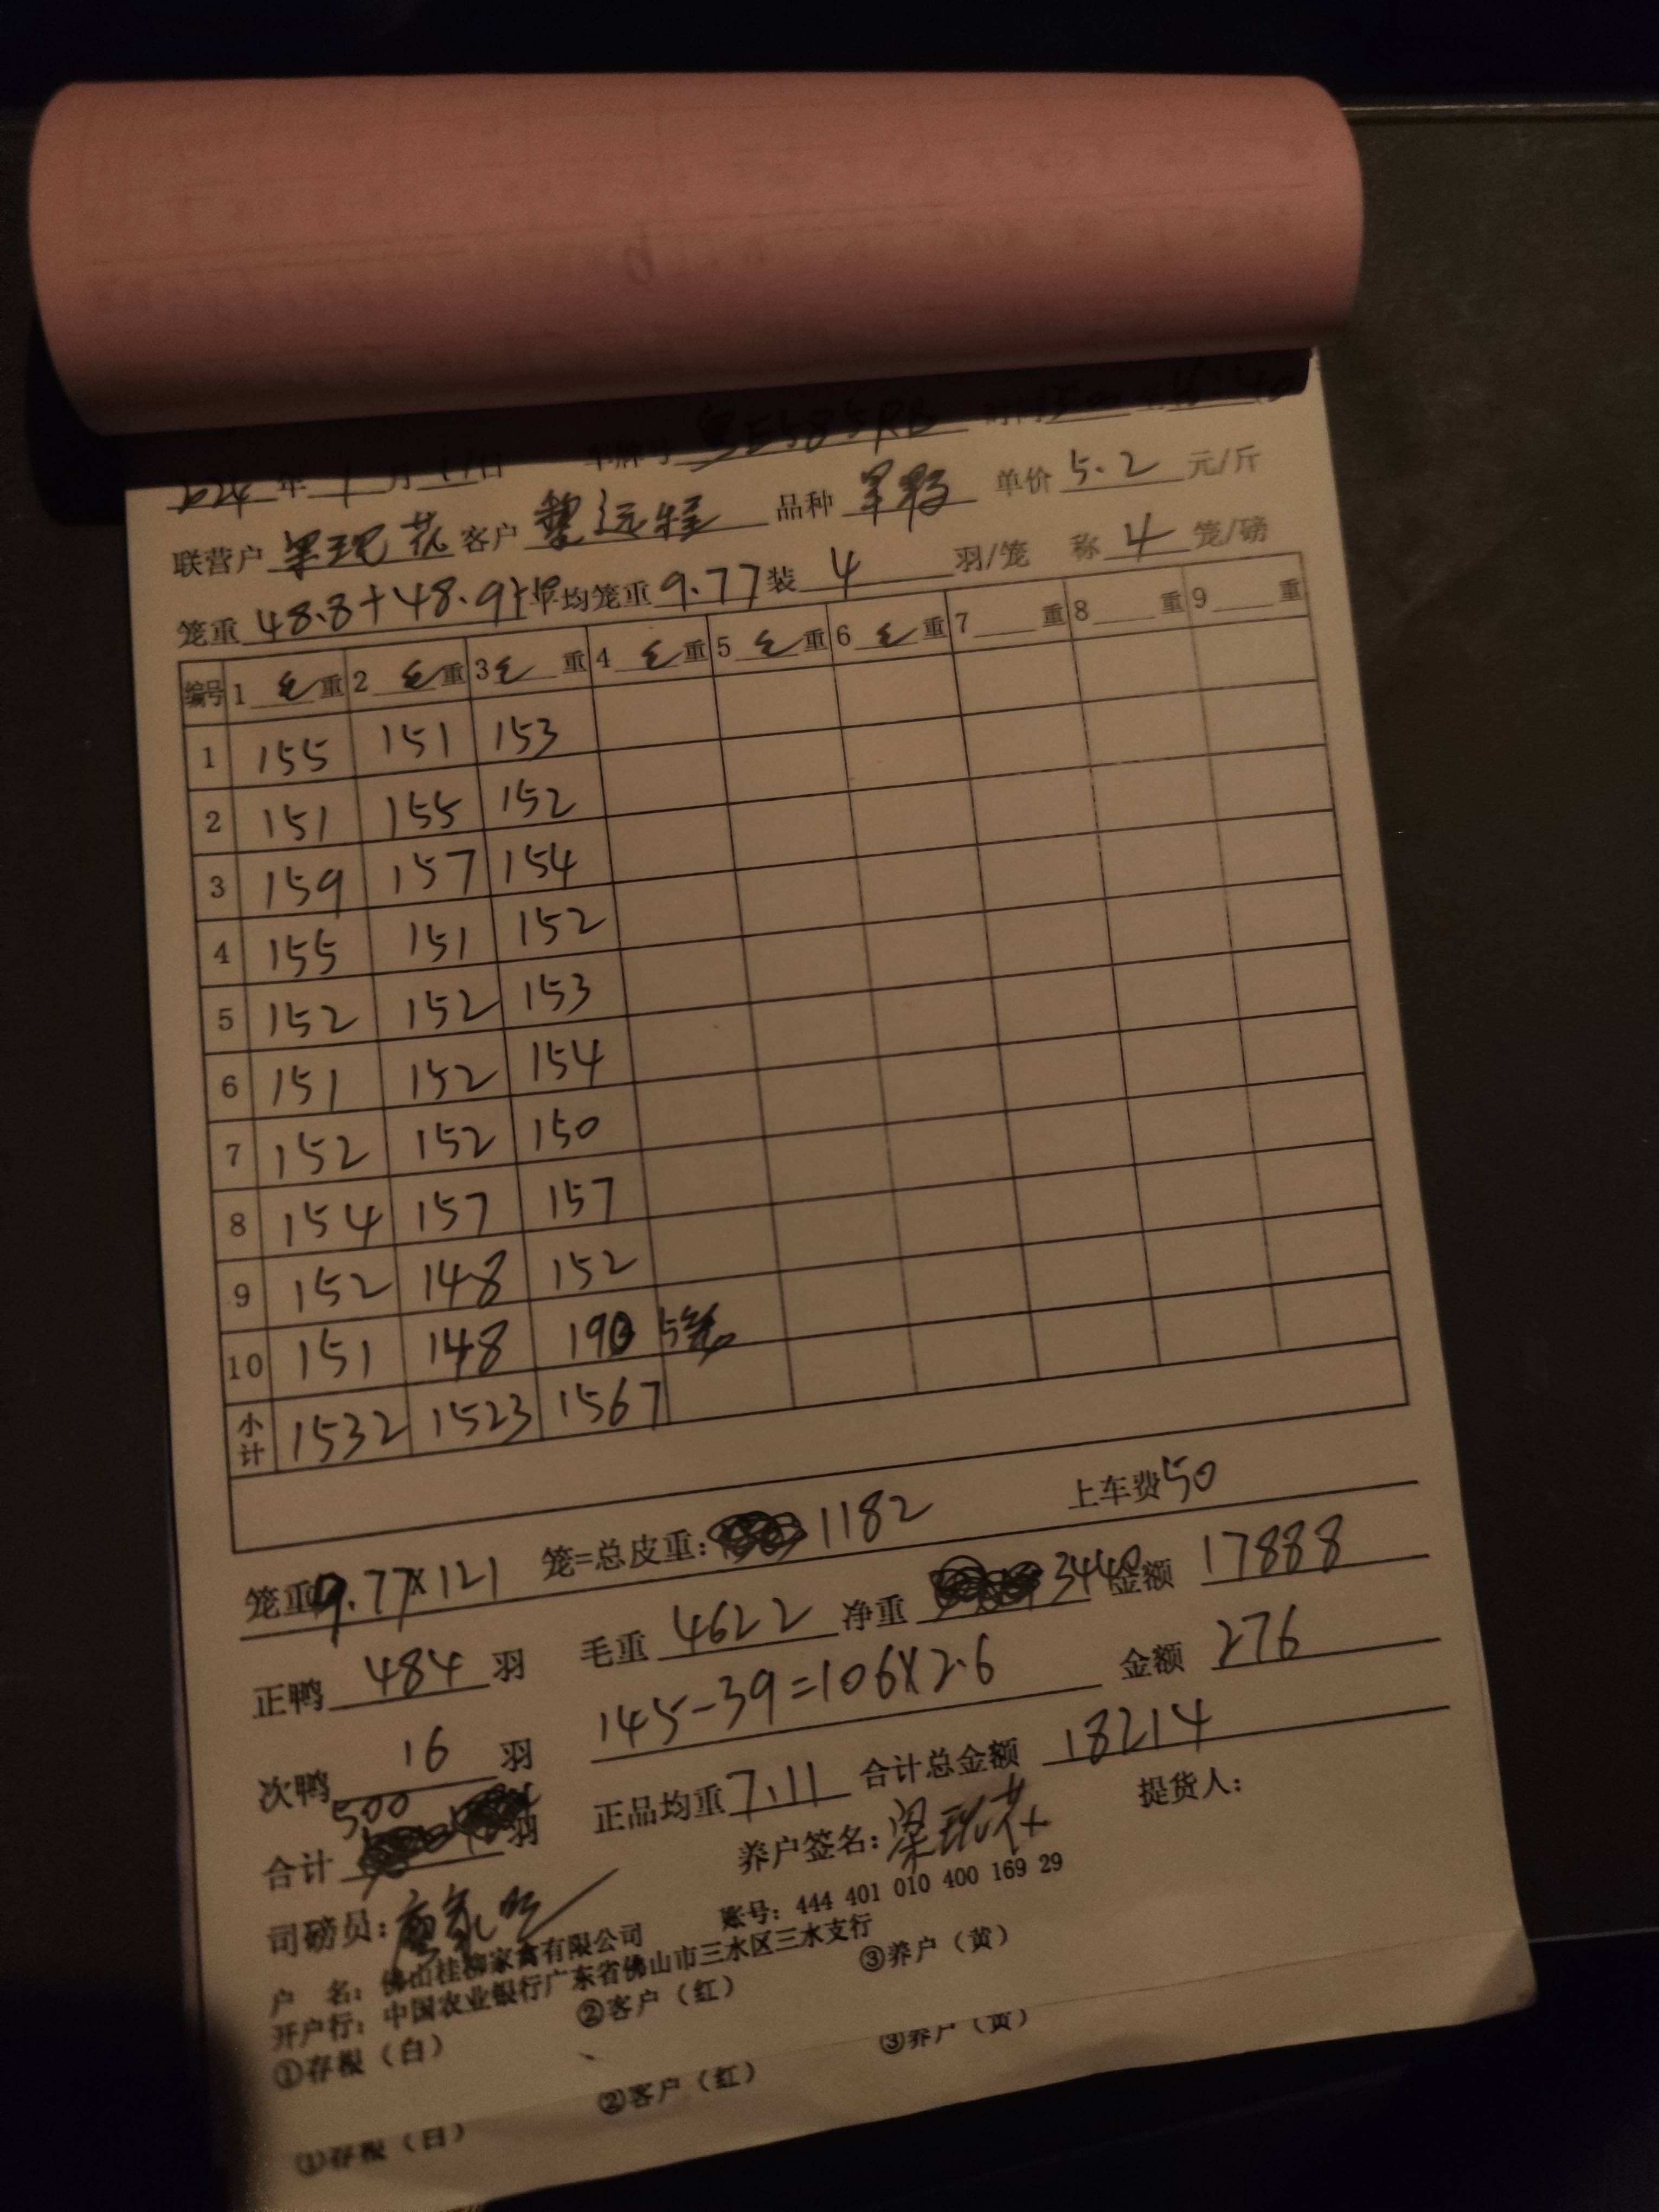 2024年1月17日 车牌号粤E585RB 时间
联营户 梁现花 客户 黎远程 品种 单价 5.2 元/斤
笼重 48.8+48.9 平均笼重 9.77 装 4 羽/笼 称 4 笼/磅
编号 1 毛重 2 毛重 3 毛重 4 毛重 5 毛重 6 毛重 7 重 8 重 9 重
1 155 151 153
2 151 155 152
3 159 157 154
4 155 151 152
5 152 152 153
6 151 152 154
7 152 152 150
8 154 157 157
9 152 148 152
10 151 148 190 5笼
小计 1532 1523 1567
笼重9.77×121 笼=总皮重: 1182 上车费50
正鸭 484 羽 毛重 4622 净重 3440 金额 17888
次鸭 16 羽 145-39=106×2.6 金额 276
合计 500 羽 正品均重 7.11 合计总金额 18214
司磅员: 养户签名: 梁现花 提货人:
户 名: 佛山桂柳家禽有限公司 账号: 444 401 010 400 169 29
开户行: 中国农业银行广东省佛山市三水区三水支行
①存根(白) ②客户(红) ③养户(黄)
①存根(白) ②客户(红) ③养户(黄)